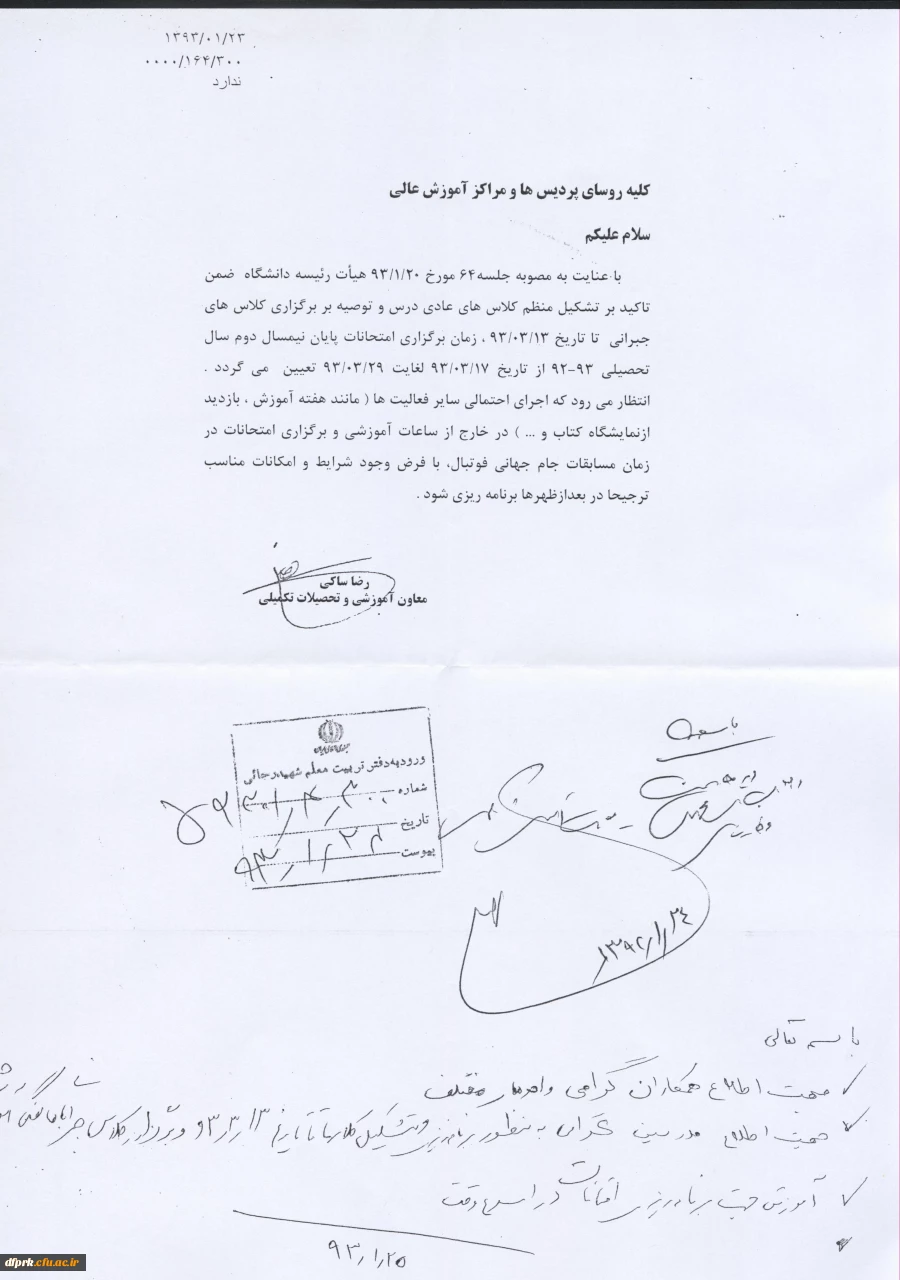 ۱۳۹۳/۰۱/۲۳
۰۰۰۰/۱۶۴/۳۰۰
ندارد
کلیه روسای پردیس ها و مراکز آموزش عالی
سلام علیکم
با عنایت به مصوبه جلسه۶۴ مورخ ۹۳/۱/۲۰ هیأت رئیسه دانشگاه ضمن
تاکید بر تشکیل منظم کلاس های عادی درس و توصیه بر برگزاری کلاس های
جبرانی تا تاریخ ۹۳/۰۳/۱۳ ، زمان برگزاری امتحانات پایان نیمسال دوم سال
تحصیلی ۹۳-۹۲ از تاریخ ۹۳/۰۳/۱۷ لغایت ۹۳/۰۳/۲۹ تعیین می گردد .
انتظار می رود که اجرای احتمالی سایر فعالیت ها ( مانند هفته آموزش ، بازدید
ازنمایشگاه کتاب و ... ) در خارج از ساعات آموزشی و برگزاری امتحانات در
زمان مسابقات جام جهانی فوتبال، با فرض وجود شرایط و امکانات مناسب
ترجیحا در بعدازظهرها برنامه ریزی شود .
رضا ساکی
معاون آموزشی و تحصیلات تکمیلی
ورود به دفتر تربیت معلم شهید رجائی
شماره
تاریخ
پیوست
باسمه تعالی
جهت اطلاع همکاران گرامی
جهت اطلاع مدرسین به منظور برنامه‌ریزی و تشکیل کلاسها تا تاریخ ۹۳/۳/۱۳
آموزش جهت برنامه‌ریزی امتحانات در اسرع وقت
۹۳/۱/۲۵
dfprk.cfu.ac.ir